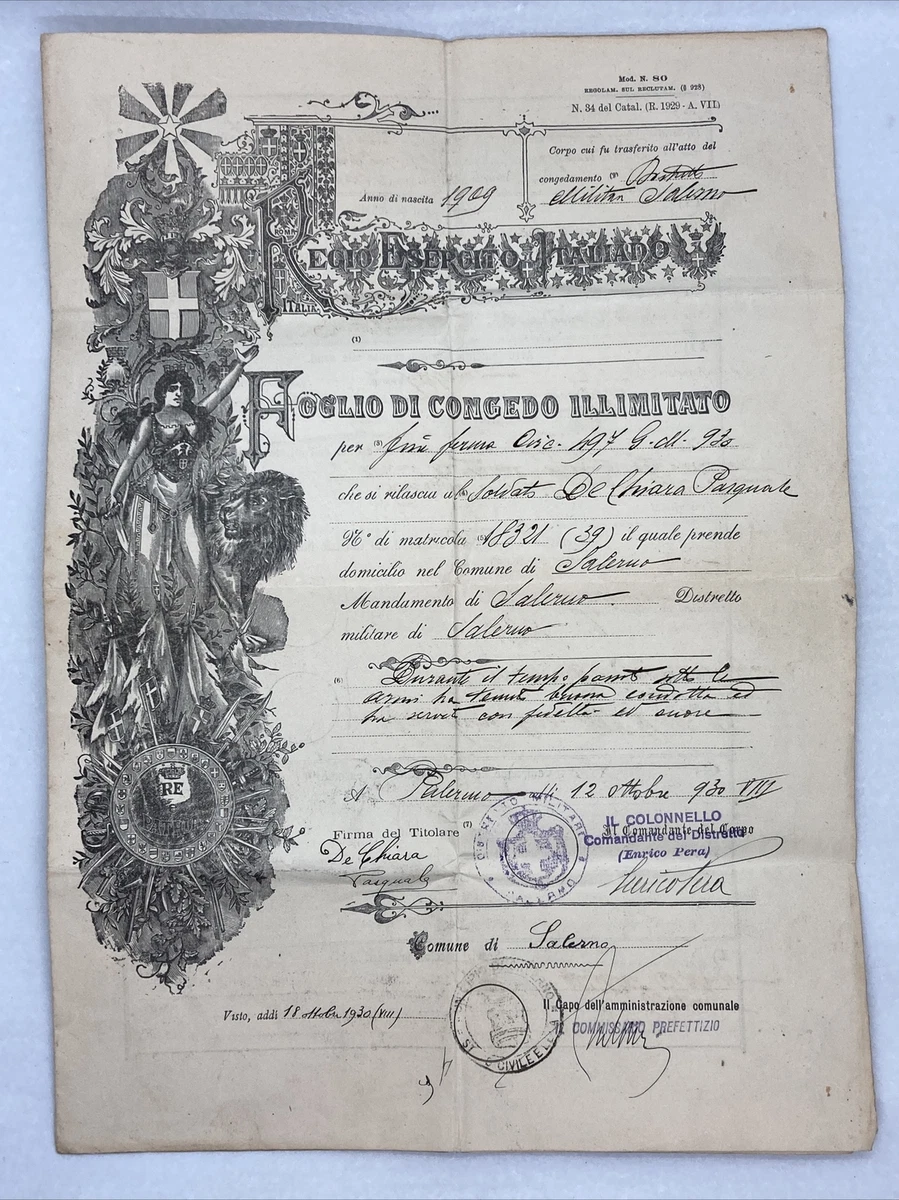 Mod. N. 80
REGOLAM. SUL RECLUTAM. (§ 928)
N. 34 del Catal. (R. 1929 - A. VII)
Corpo cui fu trasferito all'atto del
congedamento (2) Distretto
Militare Salerno
Anno di nascita 1909
ROMA
REGIO ESERCITO ITALIANO
ITALIA
(1)
FOGLIO DI CONGEDO ILLIMITATO
per (3) fine ferma Circ. 497 G. M. 930
che si rilascia al Soldato De Chiara Pasquale
N° di matricola (5) 18321 (39) il quale prende
domicilio nel Comune di Salerno
Mandamento di Salerno Distretto
militare di Salerno
(6) Durante il tempo passato sotto le
armi ha tenuto buona condotta ed
ha servito con fedeltà ed onore
RE
A Palermo addì 12 ottobre 930 VIII
Firma del Titolare (7)
De Chiara
Pasquale
DISTRETTO MILITARE
IL COLONNELLO
Il Comandante del Corpo
Comandante del Distretto
(Enrico Pera)
Enrico Pera
Comune di Salerno
Visto, addì 18 ottobre 1930 (VIII)
STATO CIVILE E LEVA
Il Capo dell'amministrazione comunale
IL COMMISSARIO PREFETTIZIO